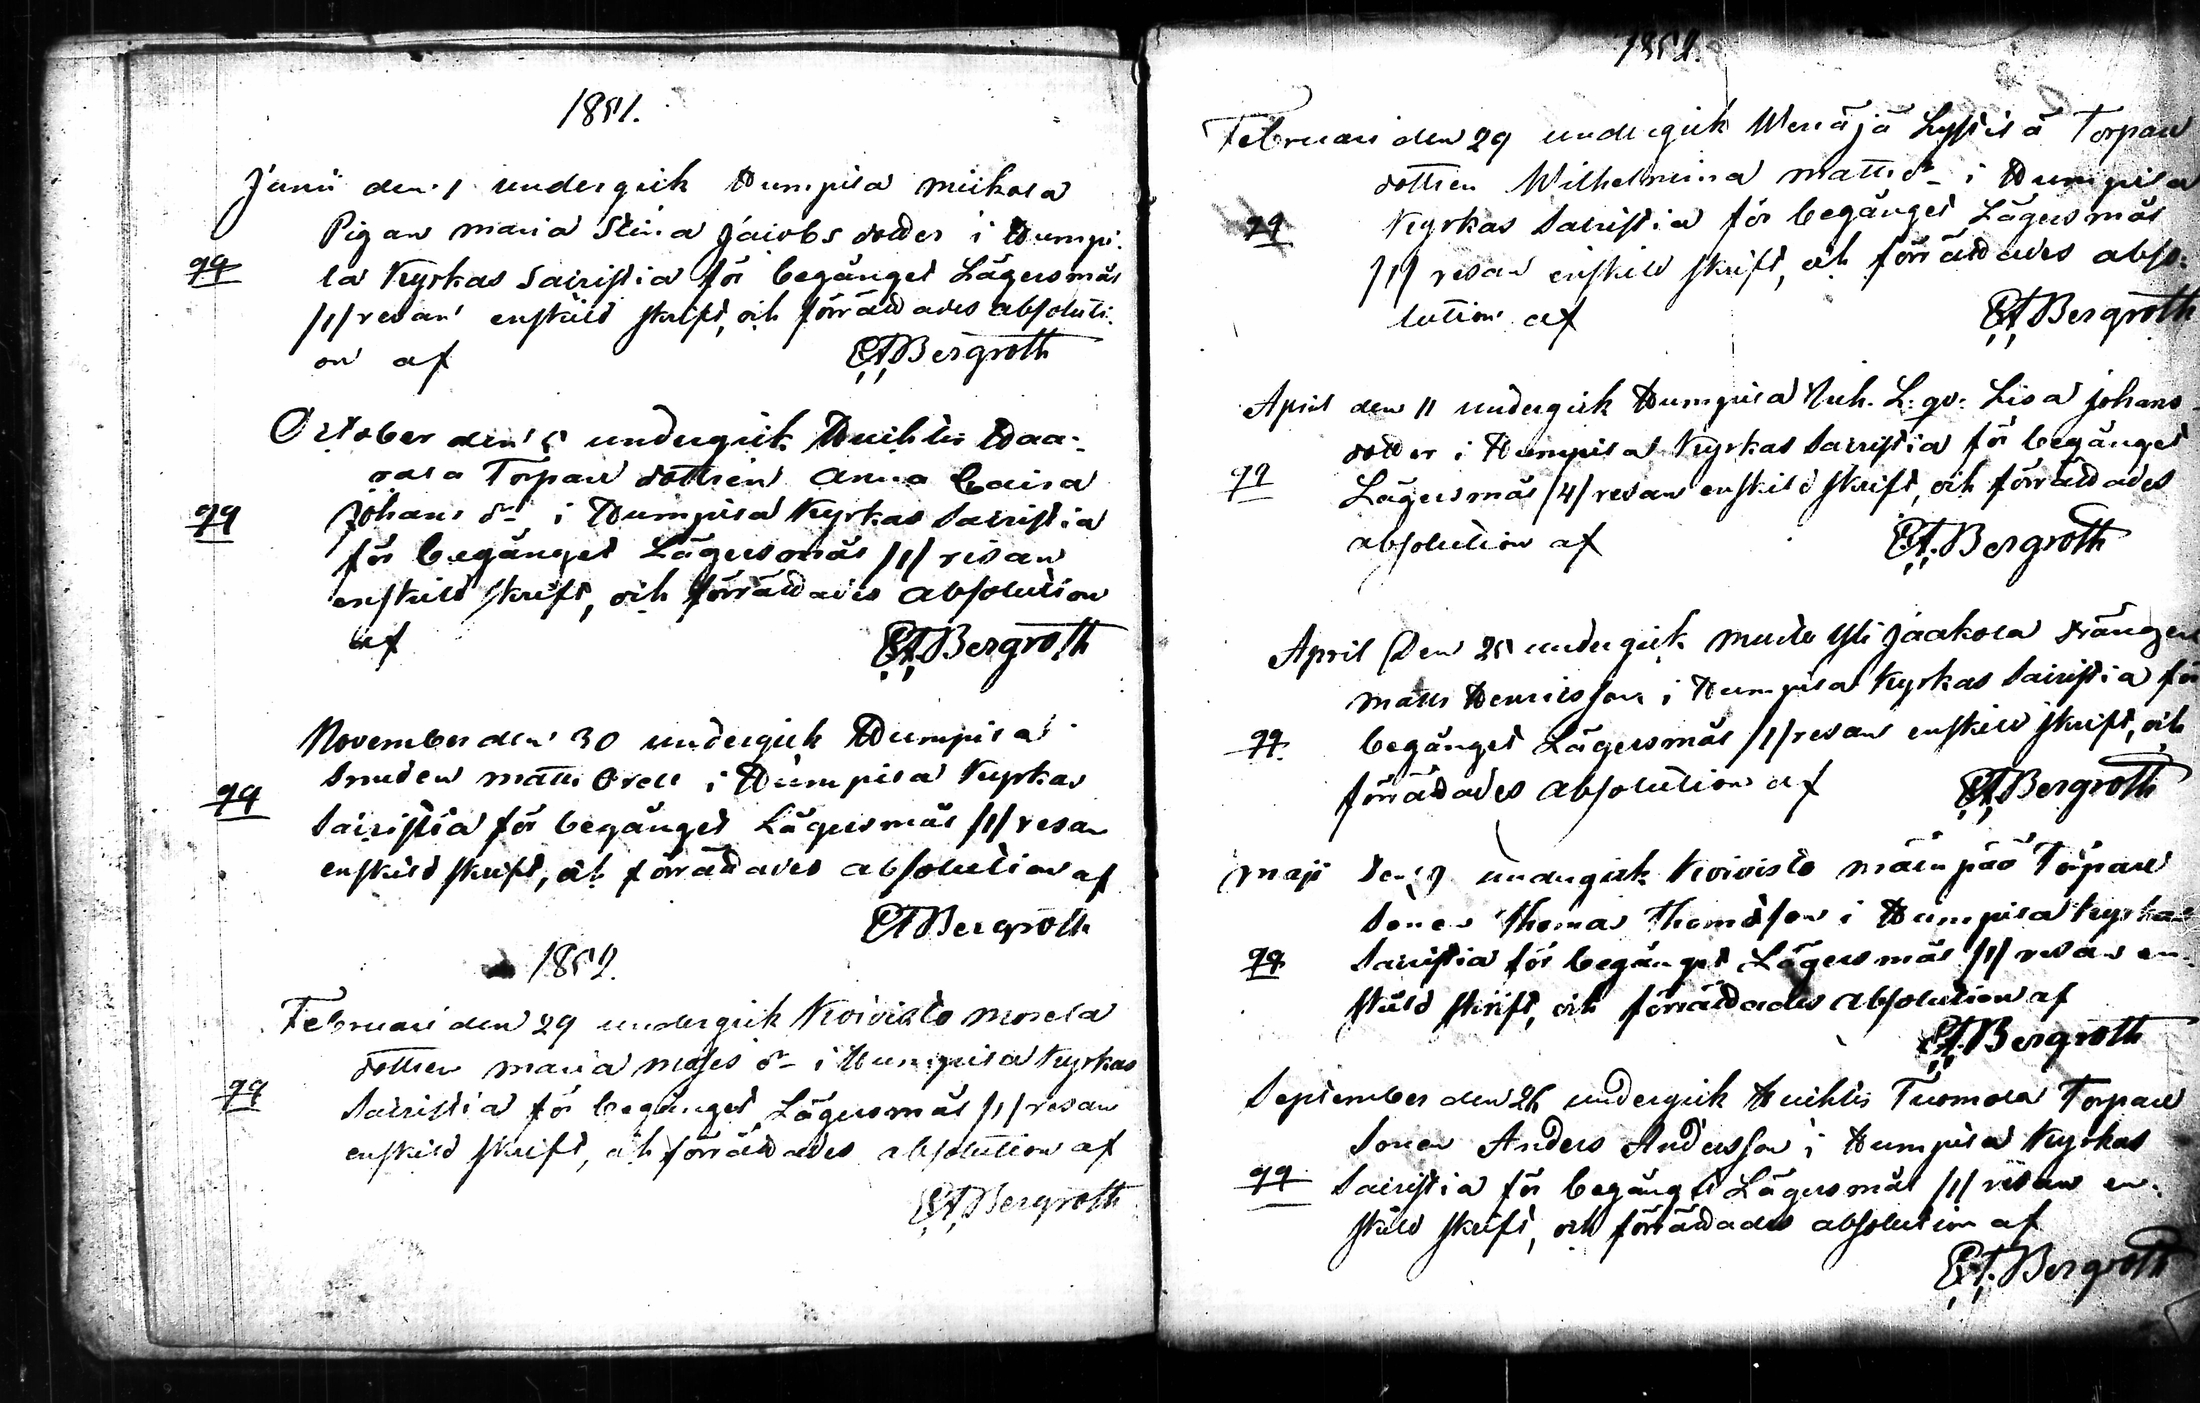 1851.
Junii den 1 undergick Humpila Mickola
Pigan Maria Stina Jacobs dotter i Humpi-
qq la Kyrkas Sacristia för begånget Lägersmål
/1/ resan enskild skrift, och förrättades absoluti-
on af CABergroth
October den 5 undergick Huihtis Haa-
Torpare dottren Anna Caisa
qq Johans dr i Humpila Kyrkas Sacristia
för begånget Lägersmål /1/ resan
enskild skrift, och förrättades absolution
af CABergroth
November den 30 undergick Humpila
Smeden Matts Orell i Humpila Kyrkas
qq Sacristia för begånget Lägersmål /1/ resan
enskild skrift, och förrättades absolution af
CABergroth
1852.
Februari den 29 undergick Koivisto
dottren Maria Moses dr i Humpila Kyrkas
qq Sacristia för begånget Lägersmål /1/ resan
enskild skrift, och förrättades absolution af
CABergroth
1852.
Februari den 29 undergick Torpare
dottren Wilhelmina Matts dr i Humpila
qq Kyrkas Sacristia för begånget Lägersmål
/1/ resan enskild skrift, och förrättades abso-
lution af CABergroth
April den 11 undergick Humpila L: qv: Lisa Johans
dotter i Humpila Kyrkas Sacristia för begånget
qq Lägersmål /4/ resan enskild skrift, och förrättades
absolution af CA.Bergroth
April Den 25 undergick Yli Jaakola drängen
Matts Henricsson i Humpila Kyrkas Sacristia för
qq. begånget Lägersmål /1/ resan enskild skrift, och
förrättades absolution af CABergroth
Maji den 9 undergick Koivisto Mäenpää Torpare
Sonen Thomas Thomasson i Humpila Kyrkas
qq Sacristia för begånget Lägersmål /1/ resan en-
skild skrift, och förrättades absolution af
CA.Bergroth
September den 26 undergick Huihtis Tuomola Torpare
Sonen Anders Andersson i Humpila Kyrkas
qq Sacristia för begånget Lägersmål /1/ resan en-
skild skrift, och förrättades absolution af
CA.Bergroth